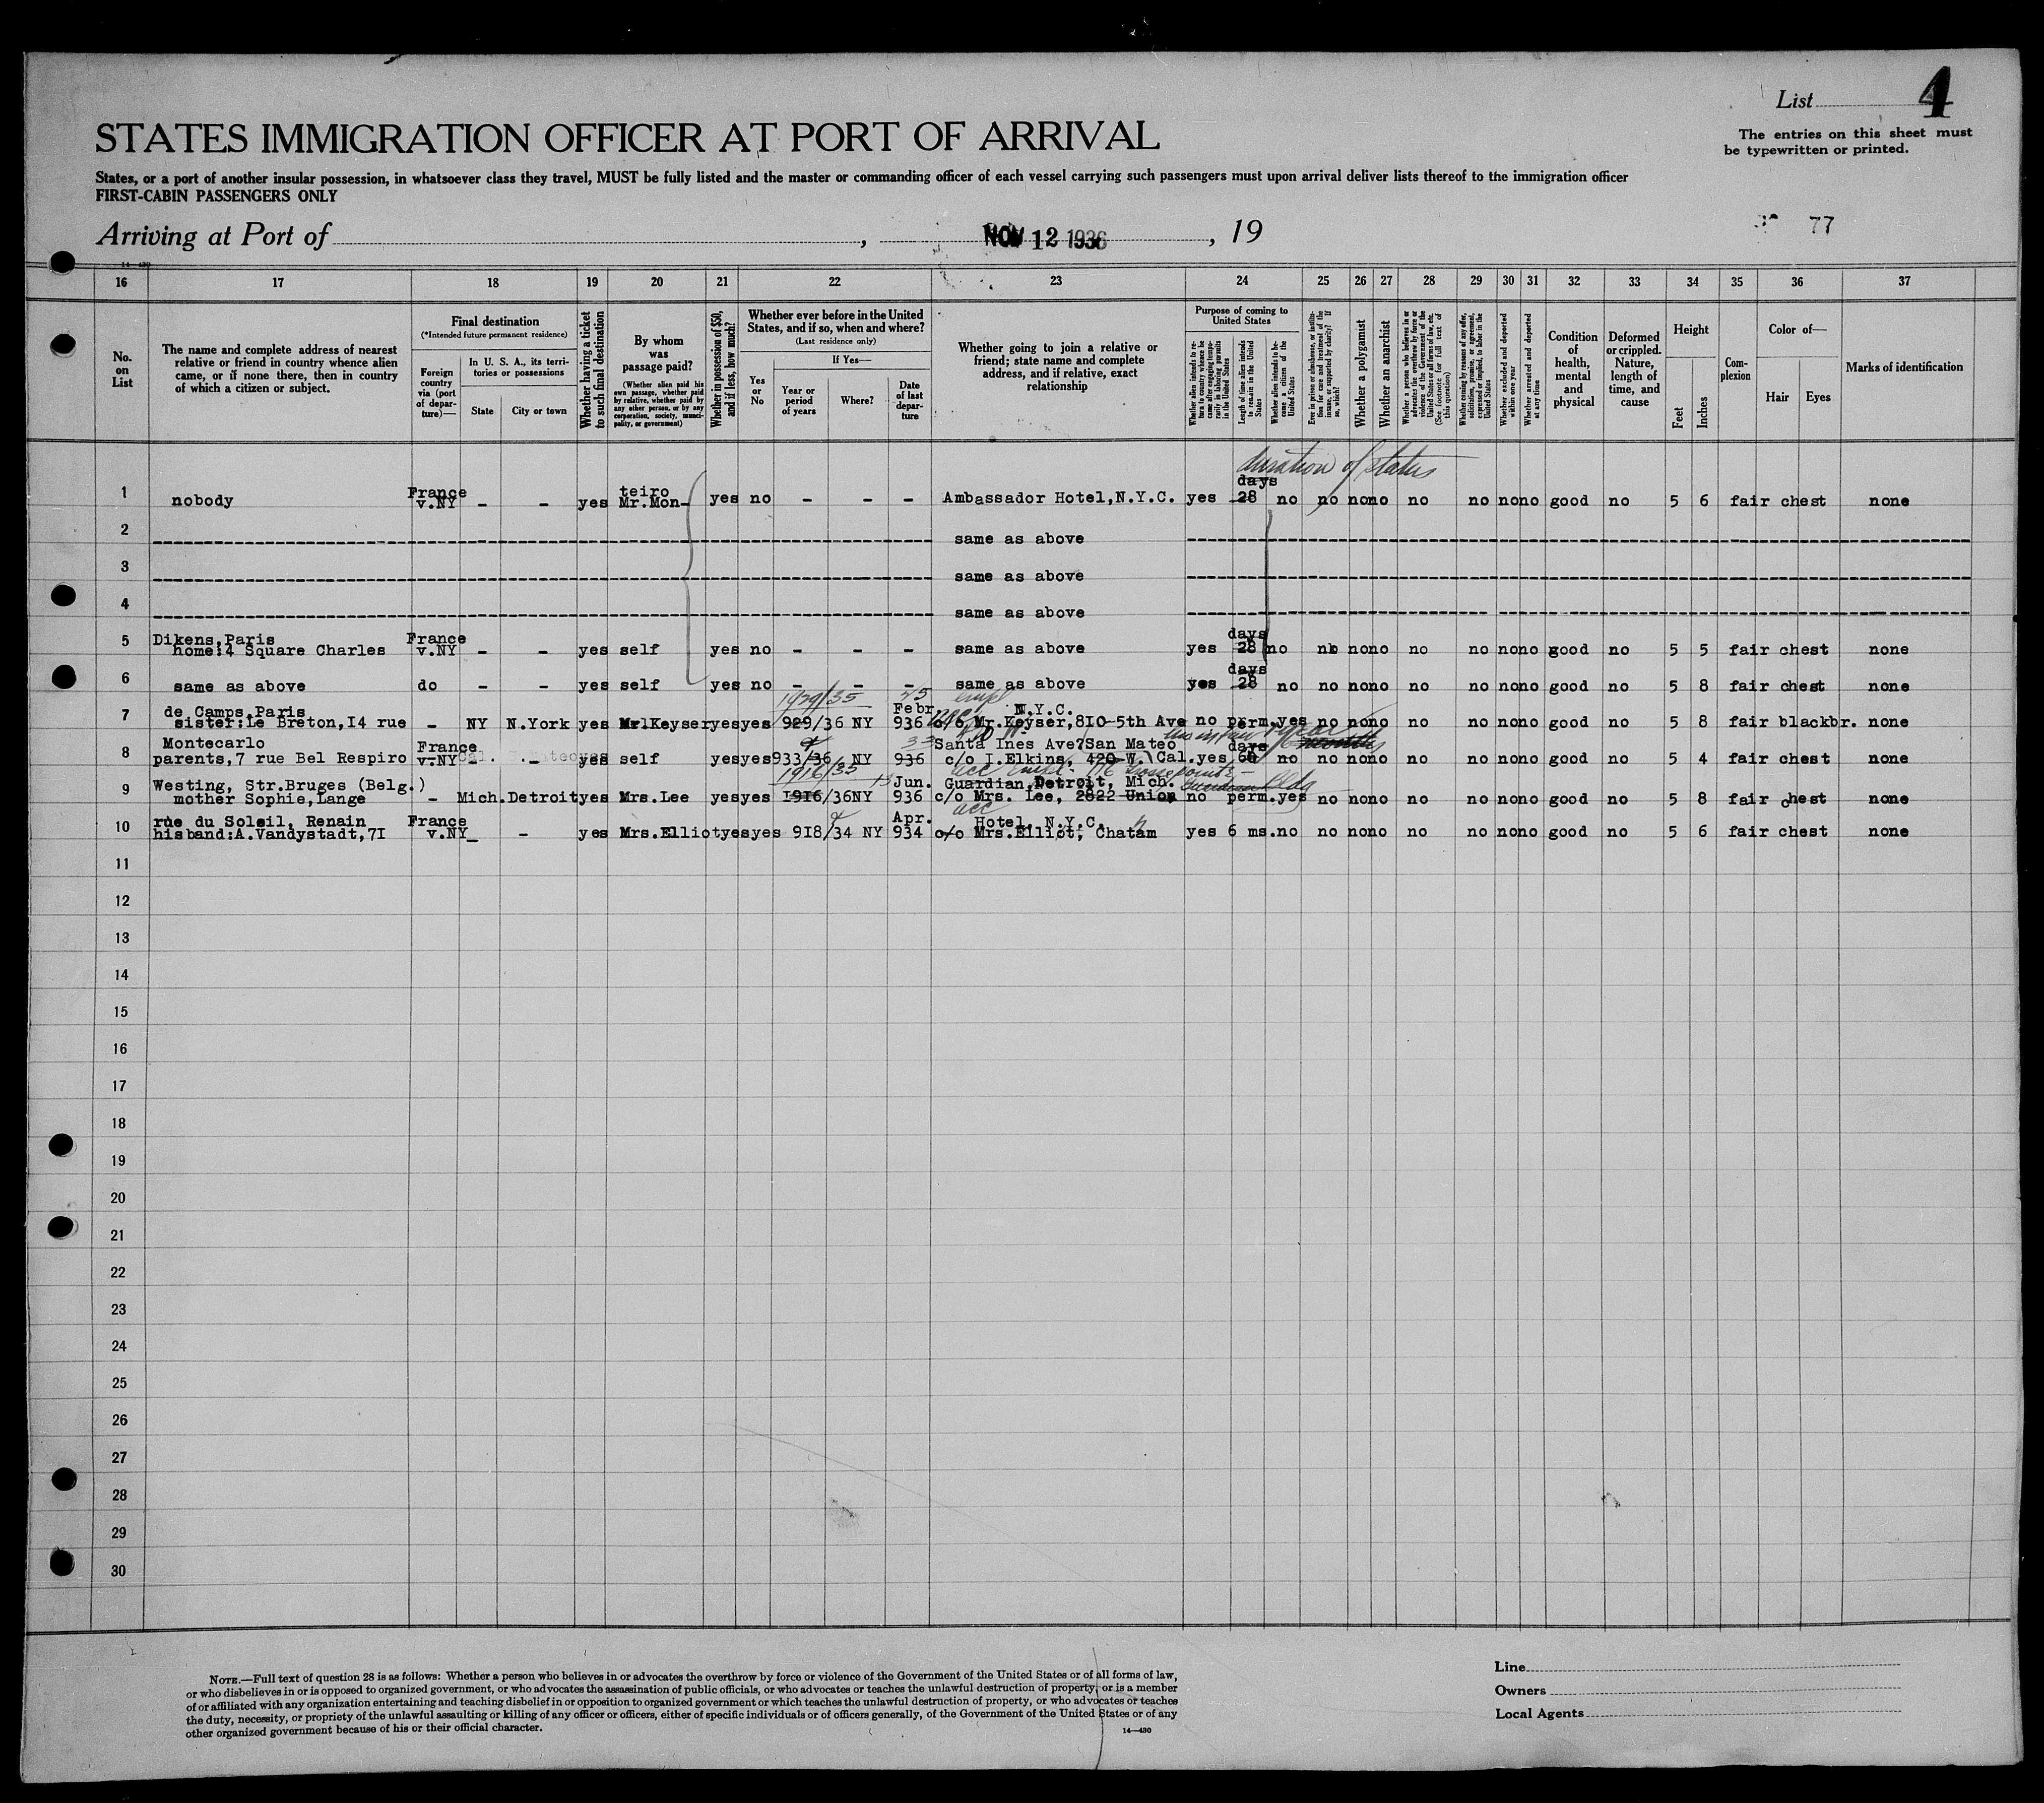 List 4
The entries on this sheet must
be typewritten or printed.
STATES IMMIGRATION OFFICER AT PORT OF ARRIVAL
States, or a port of another insular possession, in whatsoever class they travel, MUST be fully listed and the master or commanding officer of each vessel carrying such passengers must upon arrival deliver lists thereof to the immigration officer
FIRST-CABIN PASSENGERS ONLY
Arriving at Port of , NOV 12 1936 , 19
77
14—430
16 17 18 19 20 21 22 23 24 25 26 27 28 29 30 31 32 33 34 35 36 37
No. on List
The name and complete address of nearest
relative or friend in country whence alien
came, or if none there, then in country
of which a citizen or subject.
Final destination
(*Intended future permanent residence)
Foreign country via (port of departure)—
In U. S. A., its territories or possessions
State
City or town
Whether having a ticket to such final destination
By whom was passage paid?
(Whether alien paid his own passage, whether paid by relative, whether paid by any other person, or by any corporation, society, municipality, or government)
Whether in possession of $50, and if less, how much?
Whether ever before in the United
States, and if so, when and where?
(Last residence only)
Yes or No
If Yes—
Year or period of years
Where?
Date of last departure
Whether going to join a relative or
friend; state name and complete
address, and if relative, exact
relationship
Purpose of coming to United States
Whether alien intends to return to country whence he came after engaging temporarily in laboring pursuits in the United States
Length of time alien intends to remain in the United States
Whether alien intends to become a citizen of the United States
Ever in prison or almshouse, or institution for care and treatment of the insane, or supported by charity? If so, which?
Whether a polygamist
Whether an anarchist
Whether a person who believes in or advocates the overthrow by force or violence of the Government of the United States or all forms of law, etc. (See footnote for full text of this question)
Whether coming by reasons of any offer, solicitation, promise, or agreement, expressed or implied, to labor in the United States
Whether excluded and deported within one year
Whether arrested and deported at any time
Condition of health, mental and physical
Deformed or crippled. Nature, length of time, and cause
Height
Feet
Inches
Complexion
Color of—
Hair
Eyes
Marks of identification
duration of status
1 nobody France v.NY - - yes Mr.Monteiro yes no - - - Ambassador Hotel,N.Y.C. yes 28 days no no no no no no no no good no 5 6 fair chest none
2 same as above
3 same as above
4 same as above
5 Dikens,Paris
home:4 Square Charles France v.NY - - yes self yes no - - - same as above yes 28 days no no no no no no no no good no 5 5 fair chest none
6 same as above do - - yes self yes no - - - same as above yes 28 days no no no no no no no no good no 5 8 fair chest none
1929/35
7 de Camps,Paris
sister:Le Breton,I4 rue - NY N.York yes Mr.Keyser yes yes 929/36 NY Febr 936 N.Y.C.
c/o Mr.Keyser,8IO-5th Ave no perm. yes no no no no no no no good no 5 8 fair black br. none
8 Montecarlo
parents,7 rue Bel Respiro France v.NY yes self yes yes 933/36 NY 936 Santa Ines Ave?San Mateo
c/o I.Elkins, 420 W. Cal. yes 60 days no no no no no no no no good no 5 4 fair chest none
1916/35
9 Westing, Str.Bruges (Belg.)
mother Sophie,Lange - Mich. Detroit yes Mrs.Lee yes yes I9I6/36 NY Jun. 936 Guardian,Detroit, Mich.
c/o Mrs. Lee, 2822 Union no perm. yes no no no no no no no good no 5 8 fair chest none
Bldg
acc
10 rue du Soleil, Renain
hisband:A.Vandystadt,7I France v.NY - - yes Mrs.Elliot yes yes 9I8/34 NY Apr. 934 Hotel, N.Y.C.
c/o Mrs.Elliot, Chatam yes 6 ms. no no no no no no no no good no 5 6 fair chest none
11
12
13
14
15
16
17
18
19
20
21
22
23
24
25
26
27
28
29
30
NOTE.—Full text of question 28 is as follows: Whether a person who believes in or advocates the overthrow by force or violence of the Government of the United States or of all forms of law,
or who disbelieves in or is opposed to organized government, or who advocates the assassination of public officials, or who advocates or teaches the unlawful destruction of property, or is a member
of or affiliated with any organization entertaining and teaching disbelief in or opposition to organized government or which teaches the unlawful destruction of property, or who advocates or teaches
the duty, necessity, or propriety of the unlawful assaulting or killing of any officer or officers, either of specific individuals or of officers generally, of the Government of the United States or of any
other organized government because of his or their official character.
14—430
Line
Owners
Local Agents